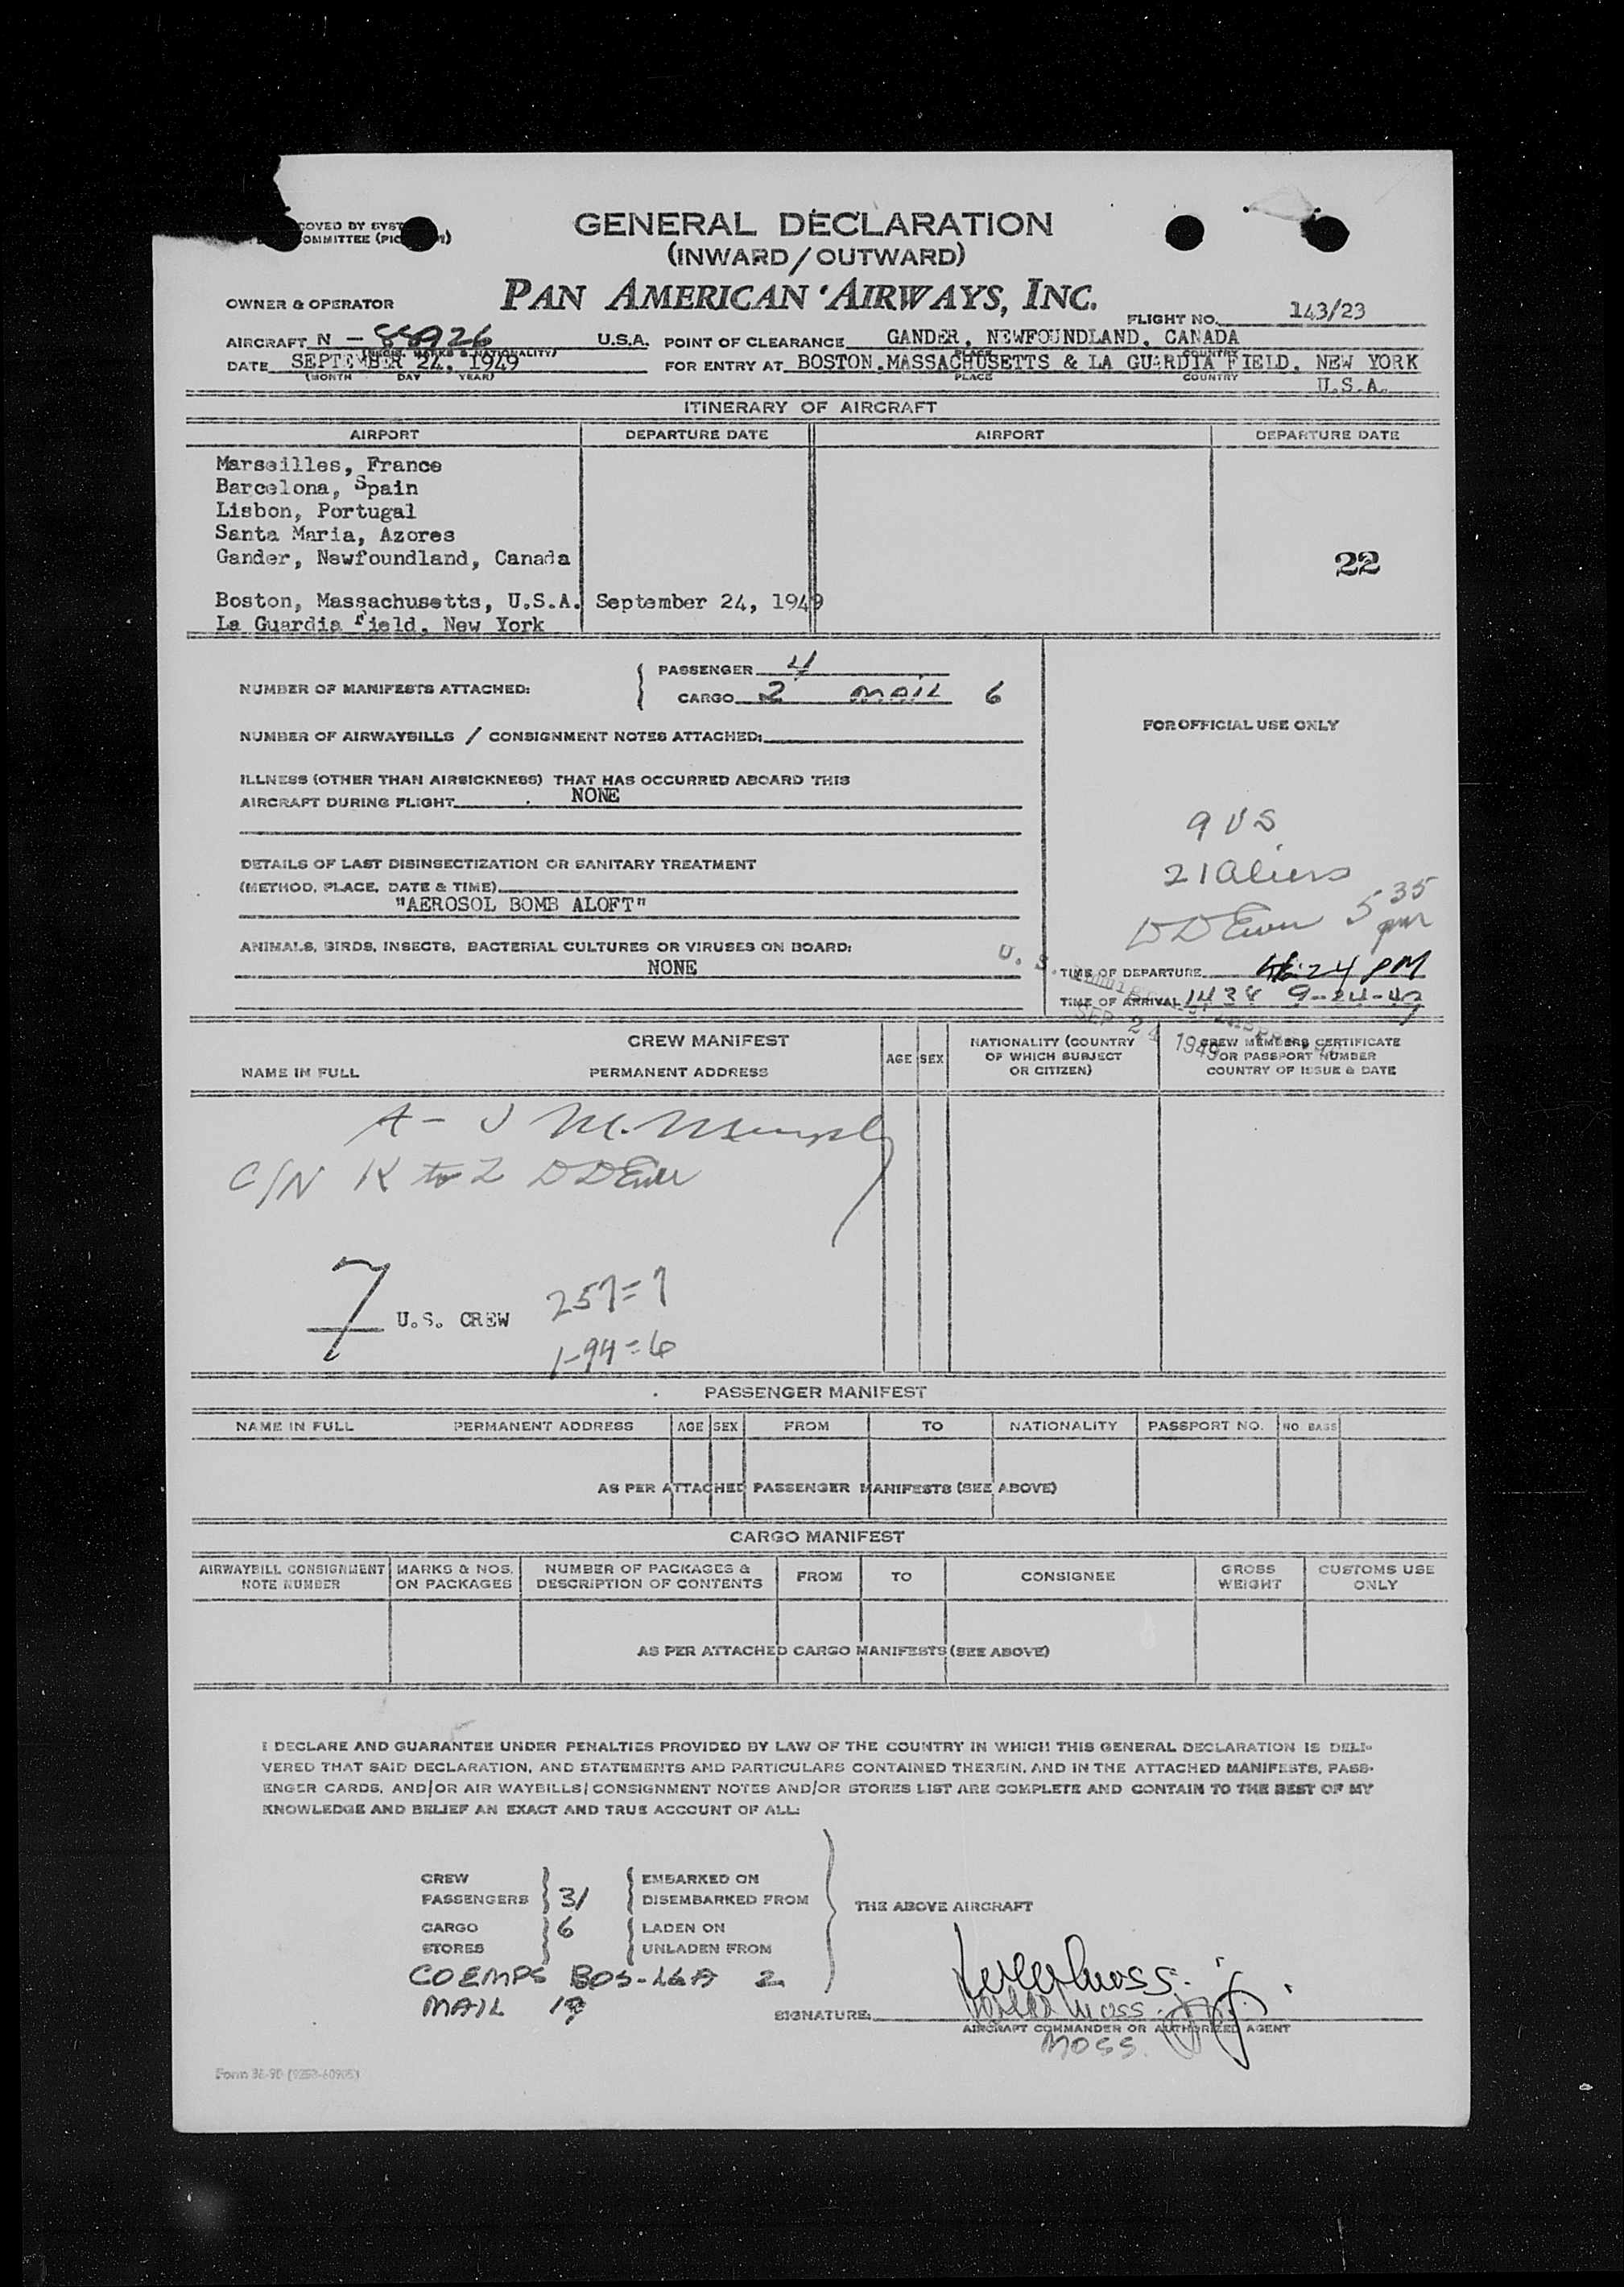 OVED BY SYST
OMMITTEE (PIC
GENERAL DECLARATION
(INWARD/OUTWARD)
PAN AMERICAN AIRWAYS, INC.
OWNER & OPERATOR
FLIGHT NO. 143/23
AIRCRAFT N - 88926 U.S.A. POINT OF CLEARANCE GANDER, NEWFOUNDLAND, CANADA
(REGIS. MARKS & NATIONALITY) PLACE COUNTRY
DATE SEPTEMBER 24, 1949 FOR ENTRY AT BOSTON, MASSACHUSETTS & LA GUARDIA FIELD, NEW YORK
(MONTH DAY YEAR) PLACE COUNTRY U.S.A.
ITINERARY OF AIRCRAFT
AIRPORT DEPARTURE DATE AIRPORT DEPARTURE DATE
Marseilles, France
Barcelona, Spain
Lisbon, Portugal
Santa Maria, Azores
Gander, Newfoundland, Canada
22
Boston, Massachusetts, U.S.A. September 24, 1949
La Guardia Field, New York
NUMBER OF MANIFESTS ATTACHED: PASSENGER 4
CARGO 2 MAIL 6
FOR OFFICIAL USE ONLY
NUMBER OF AIRWAYBILLS / CONSIGNMENT NOTES ATTACHED:
ILLNESS (OTHER THAN AIRSICKNESS) THAT HAS OCCURRED ABOARD THIS
AIRCRAFT DURING FLIGHT NONE
9 US
21 Aliens
DETAILS OF LAST DISINSECTIZATION OR SANITARY TREATMENT
(METHOD, PLACE, DATE & TIME)
"AEROSOL BOMB ALOFT"
5 35 pm
ANIMALS, BIRDS, INSECTS, BACTERIAL CULTURES OR VIRUSES ON BOARD:
NONE
U. S.
TIME OF DEPARTURE :24 PM
TIME OF ARRIVAL 1438 9-24-49
SEP 24 1949
CREW MANIFEST
NAME IN FULL PERMANENT ADDRESS AGE SEX NATIONALITY (COUNTRY OF WHICH SUBJECT OR CITIZEN) CREW MEMBERS CERTIFICATE OR PASSPORT NUMBER COUNTRY OF ISSUE & DATE
A - J M.
C/N K to Z
7 U.S. CREW
257=1
1-94=6
PASSENGER MANIFEST
NAME IN FULL PERMANENT ADDRESS AGE SEX FROM TO NATIONALITY PASSPORT NO. NO. BAGS
AS PER ATTACHED PASSENGER MANIFESTS (SEE ABOVE)
CARGO MANIFEST
AIRWAYBILL CONSIGNMENT NOTE NUMBER MARKS & NOS. ON PACKAGES NUMBER OF PACKAGES & DESCRIPTION OF CONTENTS FROM TO CONSIGNEE GROSS WEIGHT CUSTOMS USE ONLY
AS PER ATTACHED CARGO MANIFESTS (SEE ABOVE)
I DECLARE AND GUARANTEE UNDER PENALTIES PROVIDED BY LAW OF THE COUNTRY IN WHICH THIS GENERAL DECLARATION IS DELI-
VERED THAT SAID DECLARATION, AND STATEMENTS AND PARTICULARS CONTAINED THEREIN, AND IN THE ATTACHED MANIFESTS, PASS-
ENGER CARDS, AND/OR AIR WAYBILLS/CONSIGNMENT NOTES AND/OR STORES LIST ARE COMPLETE AND CONTAIN TO THE BEST OF MY
KNOWLEDGE AND BELIEF AN EXACT AND TRUE ACCOUNT OF ALL:
CREW EMBARKED ON
PASSENGERS 31 DISEMBARKED FROM
THE ABOVE AIRCRAFT
CARGO 6 LADEN ON
STORES UNLADEN FROM
COEMPS BOS-LGA 2
MAIL 19
SIGNATURE:
AIRCRAFT COMMANDER OR AUTHORIZED AGENT
MOSS.